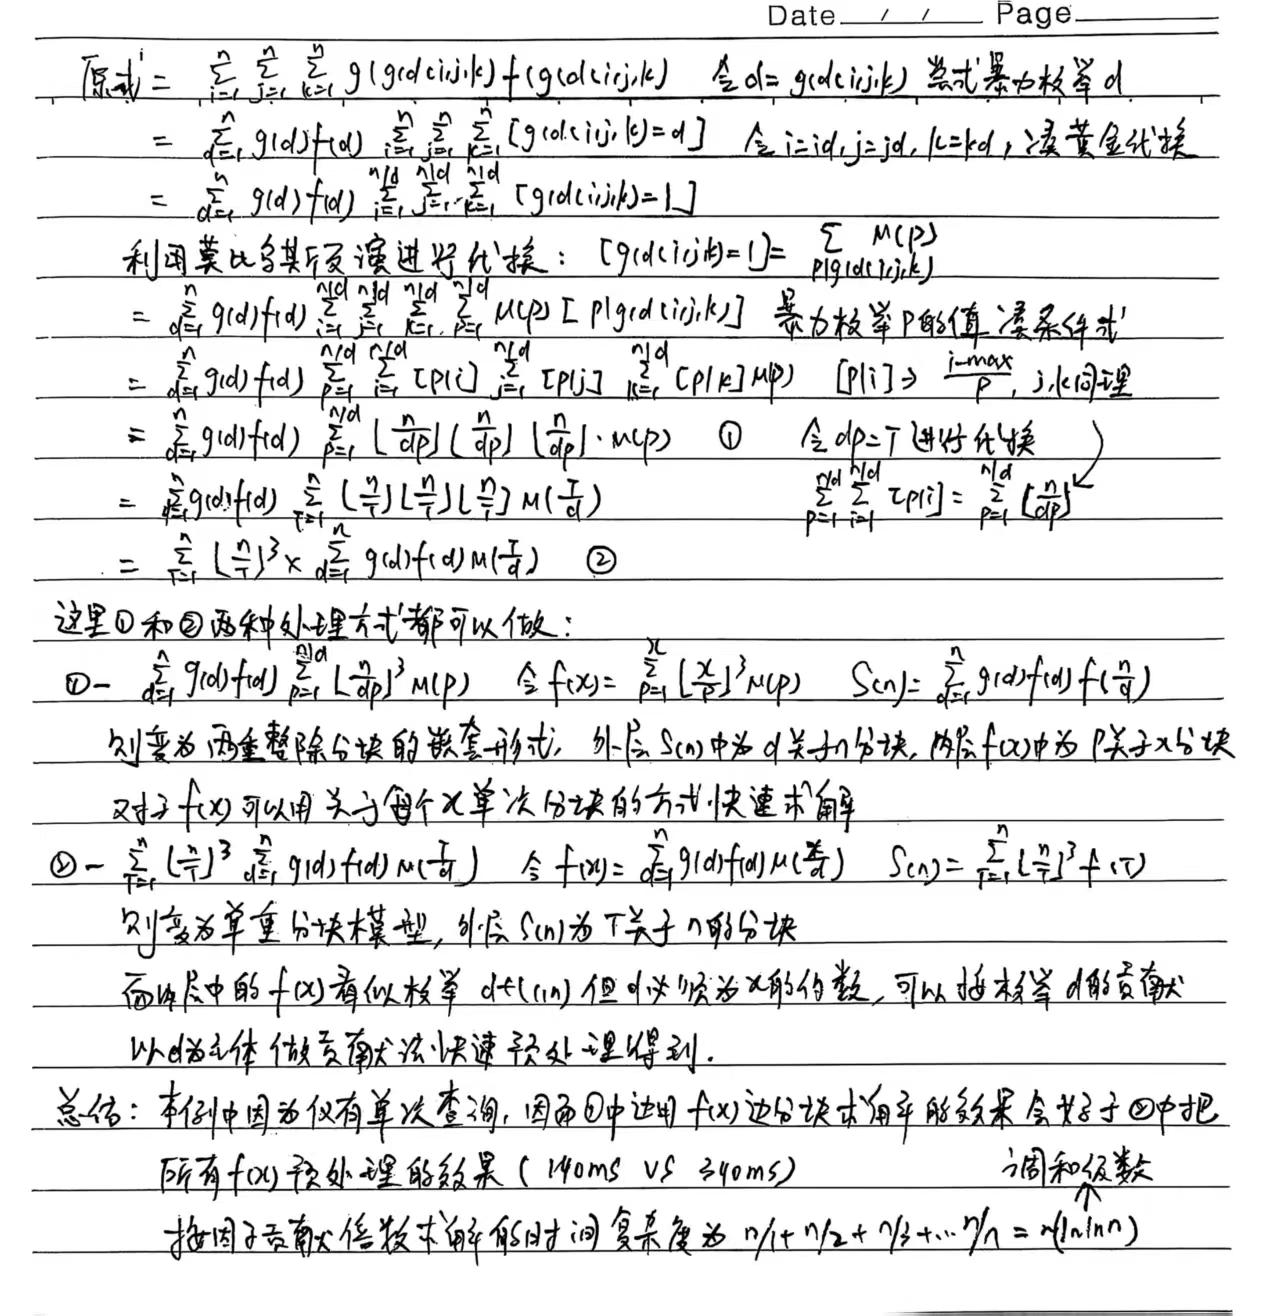 Date / / Page
原式 = ∑_{i=1}^{n} ∑_{j=1}^{n} ∑_{k=1}^{n} g(gcd(i,j,k)) f(gcd(i,j,k) 令d=gcd(i,j,k) 尝试暴力枚举d
= ∑_{d=1}^{n} g(d)f(d) ∑_{i=1}^{n} ∑_{j=1}^{n} ∑_{k=1}^{n} [gcd(i,j,k)=d] 令i=id, j=jd, k=kd, 凑黄金代换
= ∑_{d=1}^{n} g(d)f(d) ∑_{i=1}^{n/d} ∑_{j=1}^{n/d} ∑_{k=1}^{n/d} [gcd(i,j,k)=1]
利用莫比乌斯反演进行代换: [gcd(i,j,k)=1]= ∑_{p|gcd(i,j,k)} μ(p)
= ∑_{d=1}^{n} g(d)f(d) ∑_{i=1}^{n/d} ∑_{j=1}^{n/d} ∑_{k=1}^{n/d} ∑_{p=1}^{n/d} μ(p) [p|gcd(i,j,k)] 暴力枚举p的值凑条件式
= ∑_{d=1}^{n} g(d)f(d) ∑_{p=1}^{n/d} ∑_{i=1}^{n/d} [p|i] ∑_{j=1}^{n/d} [p|j] ∑_{k=1}^{n/d} [p|k] μ(p) [p|i] => i-max/p, j,k同理
= ∑_{d=1}^{n} g(d)f(d) ∑_{p=1}^{n/d} ⌊n/dp⌋⌊n/dp⌋⌊n/dp⌋·μ(p) ① 令dp=T进行代换
= ∑_{d=1}^{n} g(d)f(d) ∑_{T=1}^{n} ⌊n/T⌋⌊n/T⌋⌊n/T⌋ μ(T/d) ∑_{p=1}^{n/d} ∑_{i=1}^{n/d} [p|i] = ∑_{p=1}^{n/d} ⌊n/dp⌋
= ∑_{T=1}^{n} ⌊n/T⌋³ × ∑_{d=1}^{n} g(d)f(d)μ(T/d) ②
这里①和②两种处理方式都可以做:
①- ∑_{d=1}^{n} g(d)f(d) ∑_{p=1}^{n/d} ⌊n/dp⌋³ μ(p) 令f(x)= ∑_{p=1}^{x} ⌊x/p⌋³ μ(p) S(n)= ∑_{d=1}^{n} g(d)f(d) f(n/d)
则变为两重整除分块的嵌套形式, 外层S(n)中为d关于n分块, 内层f(x)中为p关于x分块
对于f(x)可以用关于每个x单次分块的方式快速求解
②- ∑_{T=1}^{n} ⌊n/T⌋³ ∑_{d=1}^{n} g(d)f(d)μ(T/d) 令f(x)= ∑_{d=1}^{n} g(d)f(d)μ(x/d) S(n)= ∑_{T=1}^{n} ⌊n/T⌋³ f(T)
则变为单重分块模型, 外层S(n)为T关于n的分块
而内层中的f(x)看似枚举d∈(1,n)但d必须为x的约数, 可以按枚举d的贡献
以d为主体做贡献法快速预处理得到.
总结: 本例中因为仅有单次查询, 因而①中边用f(x)边分块求解的效果会好于②中把
所有f(x)预处理的效果(140ms vs 340ms) 调和级数
按因子贡献倍数求解的时间复杂度为 n/1+n/2+n/3+...n/n = n(lnlnn)